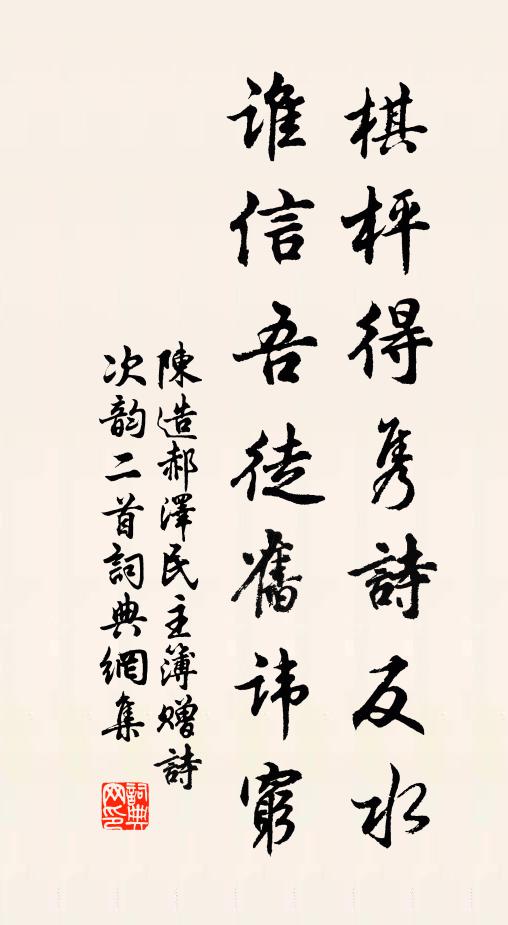 棋枰得隽詩反水
誰信吾徒舊讳窮
陳造郝澤民主簿赠詩
次韵二首詞典網集
詞典
网印